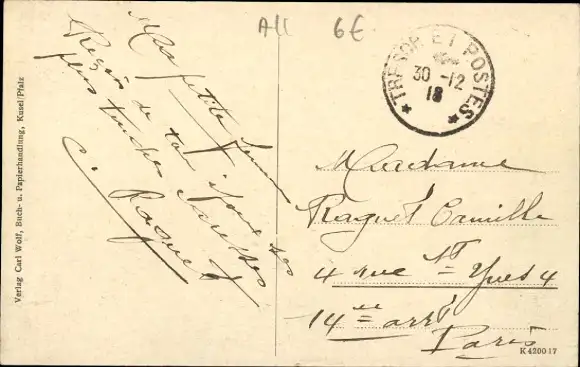 All 6€
TRESOR ET POSTES
30 -12
18
Ma petite
Reçois de ton
plus tendres
C. Raguet
Madame
Raguet Camille
4 rue St Yves 4
14ee arrt
Paris
K 420017
Verlag Carl Wolf, Buch- u. Papierhandlung, Kusel/Pfalz